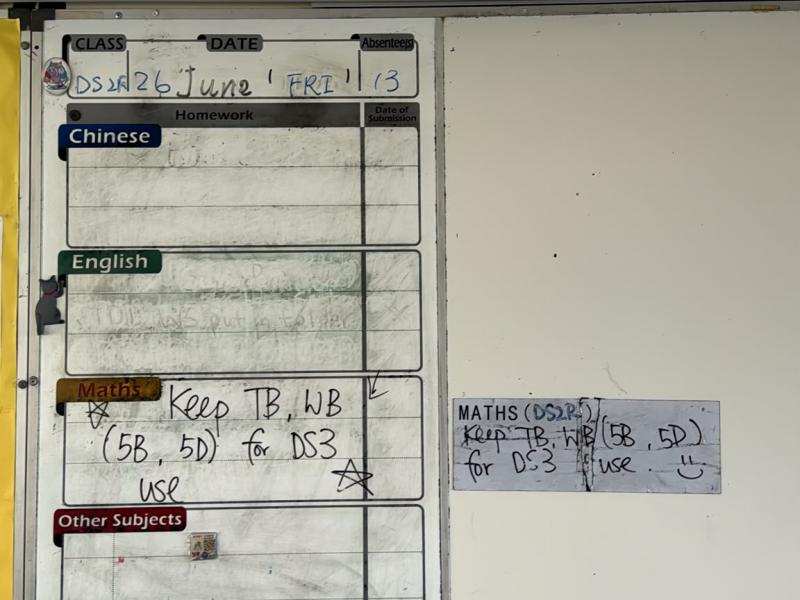 CLASS DATE Absentees
DS2R 26 June 'FRI' 13
Homework Date of Submission
Chinese
English
Maths
Keep TB, WB
(5B, 5D) for DS3
use
Other Subjects
MATHS (DS2R)
Keep TB, WB (5B, 5D)
for DS3 use.